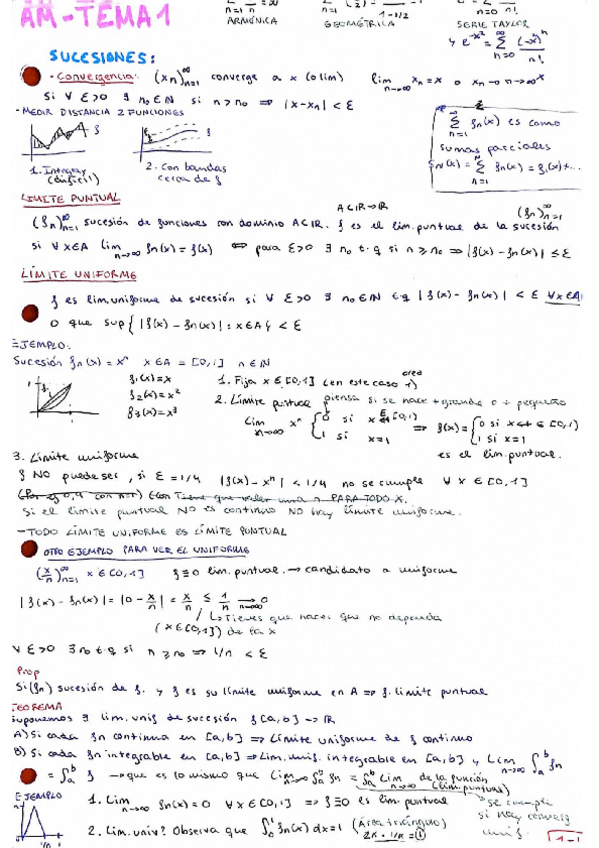 AM-TEMA 1
ARMÓNICA GEOMÉTRICA SERIE TAYLOR
1-1/2 n=0 n!
y e^-x² = Σ n=0 ∞ (-x²)^n / n!
SUCESIONES:
- Convergencia: (xn)∞n=1 converge a x (o lim) lim n→∞ xn = x o xn → n→∞ x
Si ∀ ε>0 ∃ n₀∈ℕ si n>n₀ ⇒ |x-xn| < ε
- MEDIR DISTANCIA 2 FUNCIONES
Σ n=1 ∞ fn(x) es como
sumas parciales
fN(x) = Σ n=1 N fn(x) = f1(x)+...
1. Integral (difícil)
2. Con bandas cerca de f
LIMITE PUNTUAL
A⊂ℝ→ℝ (fn)∞n=1
(fn)∞n=1 sucesión de funciones con dominio A⊂ℝ. f es el lim. puntual de la sucesión
si ∀x∈A lim n→∞ fn(x) = f(x) ⇔ para ε>0 ∃ n₀ t.q si n≥n₀ ⇒ |f(x)-fn(x)| ≤ ε
LÍMITE UNIFORME
f es lim. uniforme de sucesión si ∀ ε>0 ∃ n₀∈ℕ t.q |f(x)-fn(x)| < ε ∀x∈A
O que sup{|f(x)-fn(x)|: x∈A} < ε
EJEMPLO:
Sucesión fn(x) = x^n x∈A = [0,1] n∈ℕ
f1(x)=x
f2(x)=x²
f3(x)=x³
1. Fija x∈[0,1] (en este caso creo 1)
2. Límite puntual piensa si se hace + grande o + pequeño
lim n→∞ x^n {0 si x∈[0,1) 1 si x=1 ⇒ f(x)={0 si x∈[0,1) 1 si x=1
es el lim. puntual.
3. Límite uniforme
f NO puede ser, si ε=1/4 |f(x)-x^n| < 1/4 no se cumple ∀ x∈[0,1]
Tiene que valer una n PARA TODO X.
Si el limite puntual NO es continuo NO hay límite uniforme.
- TODO LÍMITE UNIFORME ES LÍMITE PUNTUAL
OTRO EJEMPLO PARA VER EL UNIFORME
(x/n)∞n=1 x∈[0,1] f≡0 lim. puntual. → candidato a uniforme
|f(x)-fn(x)| = |0-x/n| = x/n ≤ 1/n n→∞ →0
↳ Tienes que hacer que no dependa
(x∈[0,1]) de la x
∀ ε>0 ∃ n₀ t.q si n≥n₀ ⇒ 1/n < ε
Prop
Si (fn) sucesión de f. y f es su límite uniforme en A ⇒ f. limite puntual
TEOREMA
Suponemos ∃ lim. unif de sucesión f [a,b] → ℝ
A) Si cada fn continua en [a,b] ⇒ Límite uniforme de f continuo
B) Si cada fn integrable en [a,b] ⇒ Lim. unif. integrable en [a,b] y lim n→∞ ∫ab fn
= ∫ab f → que es lo mismo que lim n→∞ ∫ab fn = ∫ab lim de la función
(lim. puntual)
EJEMPLO
1. Lim n→∞ fn(x)=0 ∀x∈[0,1] ⇒ f≡0 es lim. puntual
se cumple
si hay converg
unif.
2. Lim. univ? Observa que ∫01 fn(x) dx=1 (Área triángulo)